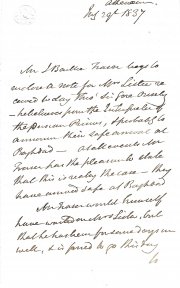 Athenaeum
July 29th 1837
Mr J Baillie Fraser begs to
enclose a note for Mr Lister re
ceived to day thro' Sir Gore Ousely
– he believes from the Interpreter of
the Persian Princes, & probably to
announce their safe arrival at
Baghdad – at all events Mr
Fraser has the pleasure to state
that this is really the case – they
have arrived safe at Baghdad
Mr Fraser would himself
have waited on Mr Lister, but
that he has been for some days un
well, & is forced to go this day
to